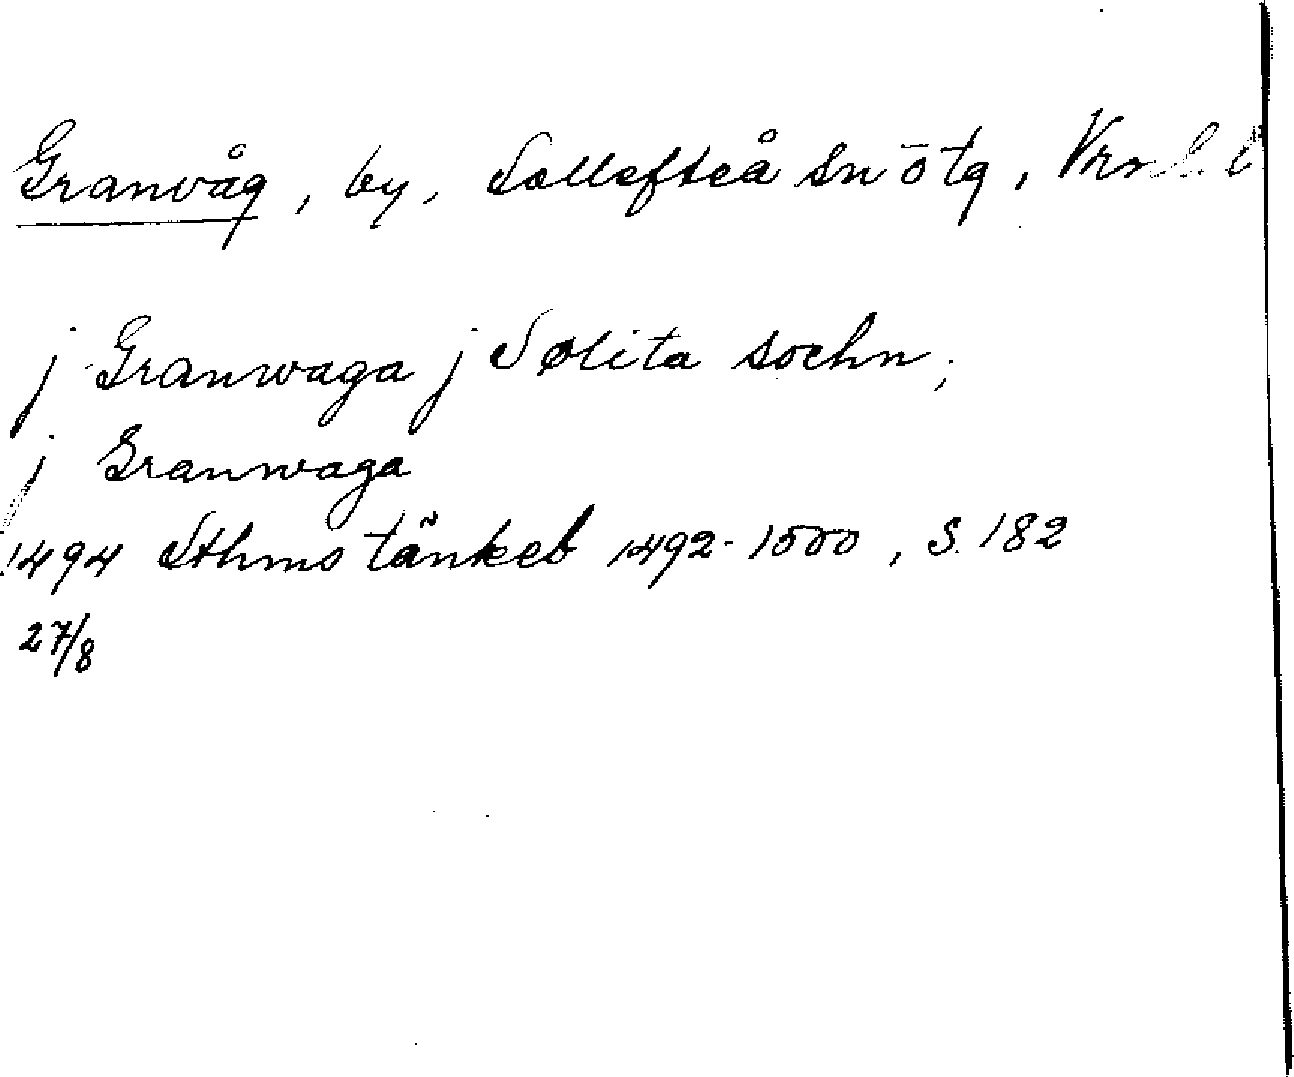 Granvåg, by, Sollefteå sn o tg, Vrnl. l
j Granwaga j Solita sochn;
j Granwaga
1494 Sthms tänkeb 1492-1500, S. 182
27/8